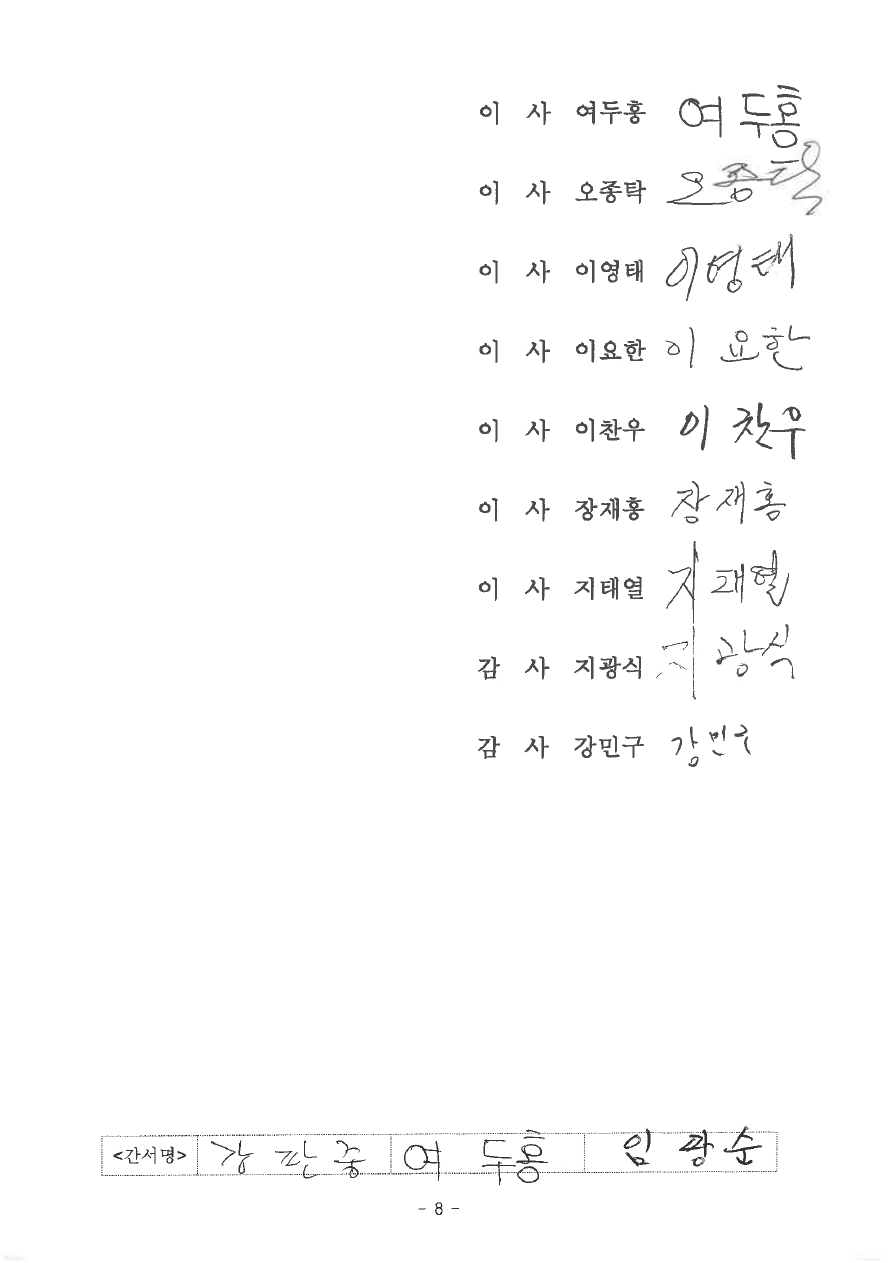 이 사 여두홍 여두홍
이 사 오종탁 오종탁
이 사 이영태 이영태
이 사 이요한 이요한
이 사 이찬우 이찬우
이 사 장재홍 장재홍
이 사 지태열 지태열
감 사 지광식 지광식
감 사 강민구 강민구
<간서명> 강판중 여두홍 임광순
- 8 -